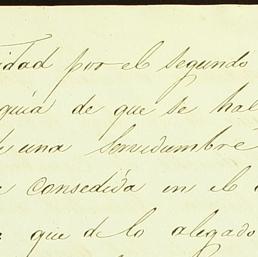 idad por el segundo
quia de que se hal
de una servidumbre
e consedida en el
que de lo alegado